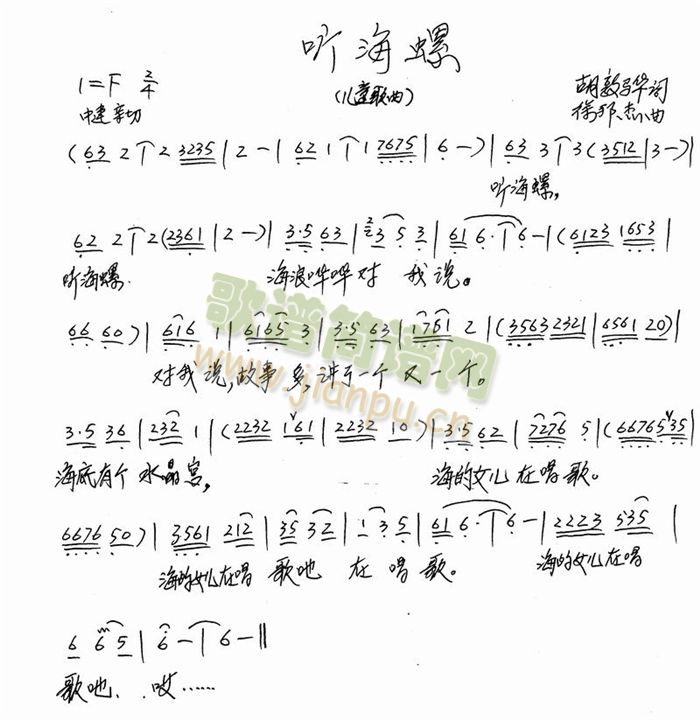 听海螺
(儿童歌曲)
1=F 2/4
中速 亲切
胡敦骅词
徐邦杰曲
(63 2 | 2 3235 | 2 - | 62 1 | 1 7675 | 6 -) | 63 3 | 3 (3512 | 3 -) |
听海螺,
62 2 | 2 (2361 | 2 -) | 3·5 63 | 3 5 3 | 61 6· | 6 - | (6123 1653 |
听海螺. 海浪哗哗对 我 说。
66 60) | 616 1 | 6165 3 | 3·5 63 | 1761 2 | (3563 2321 | 6561 20) |
对我 说,故事 多,讲了一个 又一个。
3·5 36 | 232 1 | (2232 161 | 2232 10) | 3·5 62 | 7276 5 | (66765 35 |
海底有个 水晶宫, 海的女儿 在唱歌。
6676 50) | 3561 212 | 35 32 | 1 3 5 | 61 6· | 6 - | 2223 535 |
海的女儿在唱 歌吔 在 唱 歌。 海的女儿在唱
6 6 5 | 6 - | 6 - ‖
歌吔、 哎……
歌谱简谱网
www.jianpu.cn